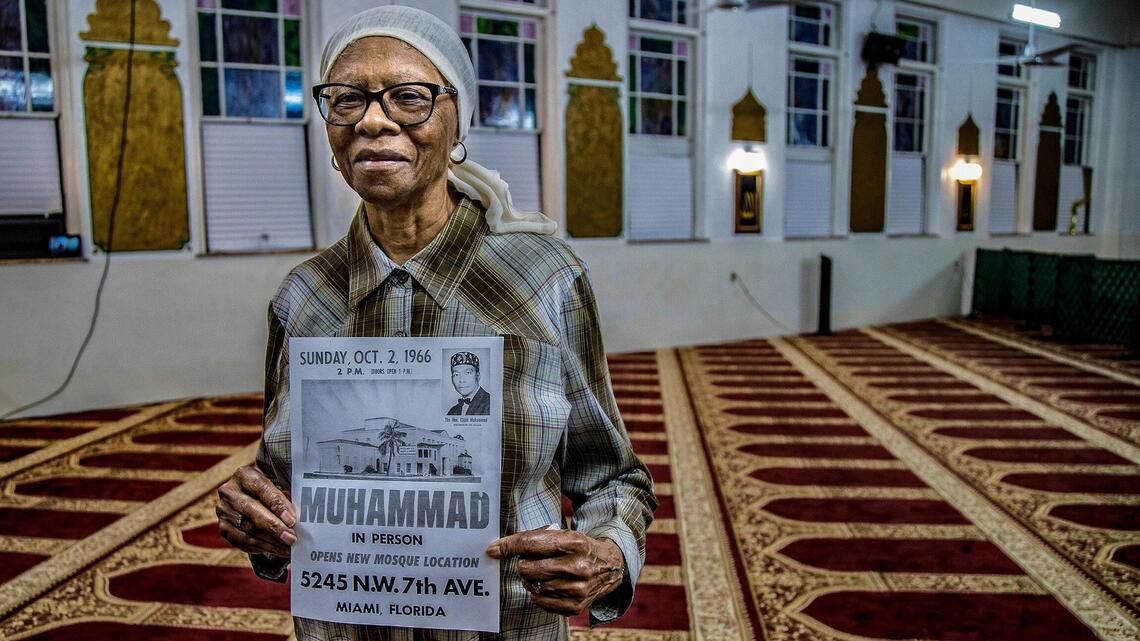 SUNDAY, OCT. 2, 1966
2 P.M. (DOORS OPEN 1 P.M.)
The Hon. Elijah Muhammad
MUHAMMAD
IN PERSON
OPENS NEW MOSQUE LOCATION
5245 N.W. 7th AVE.
MIAMI, FLORIDA